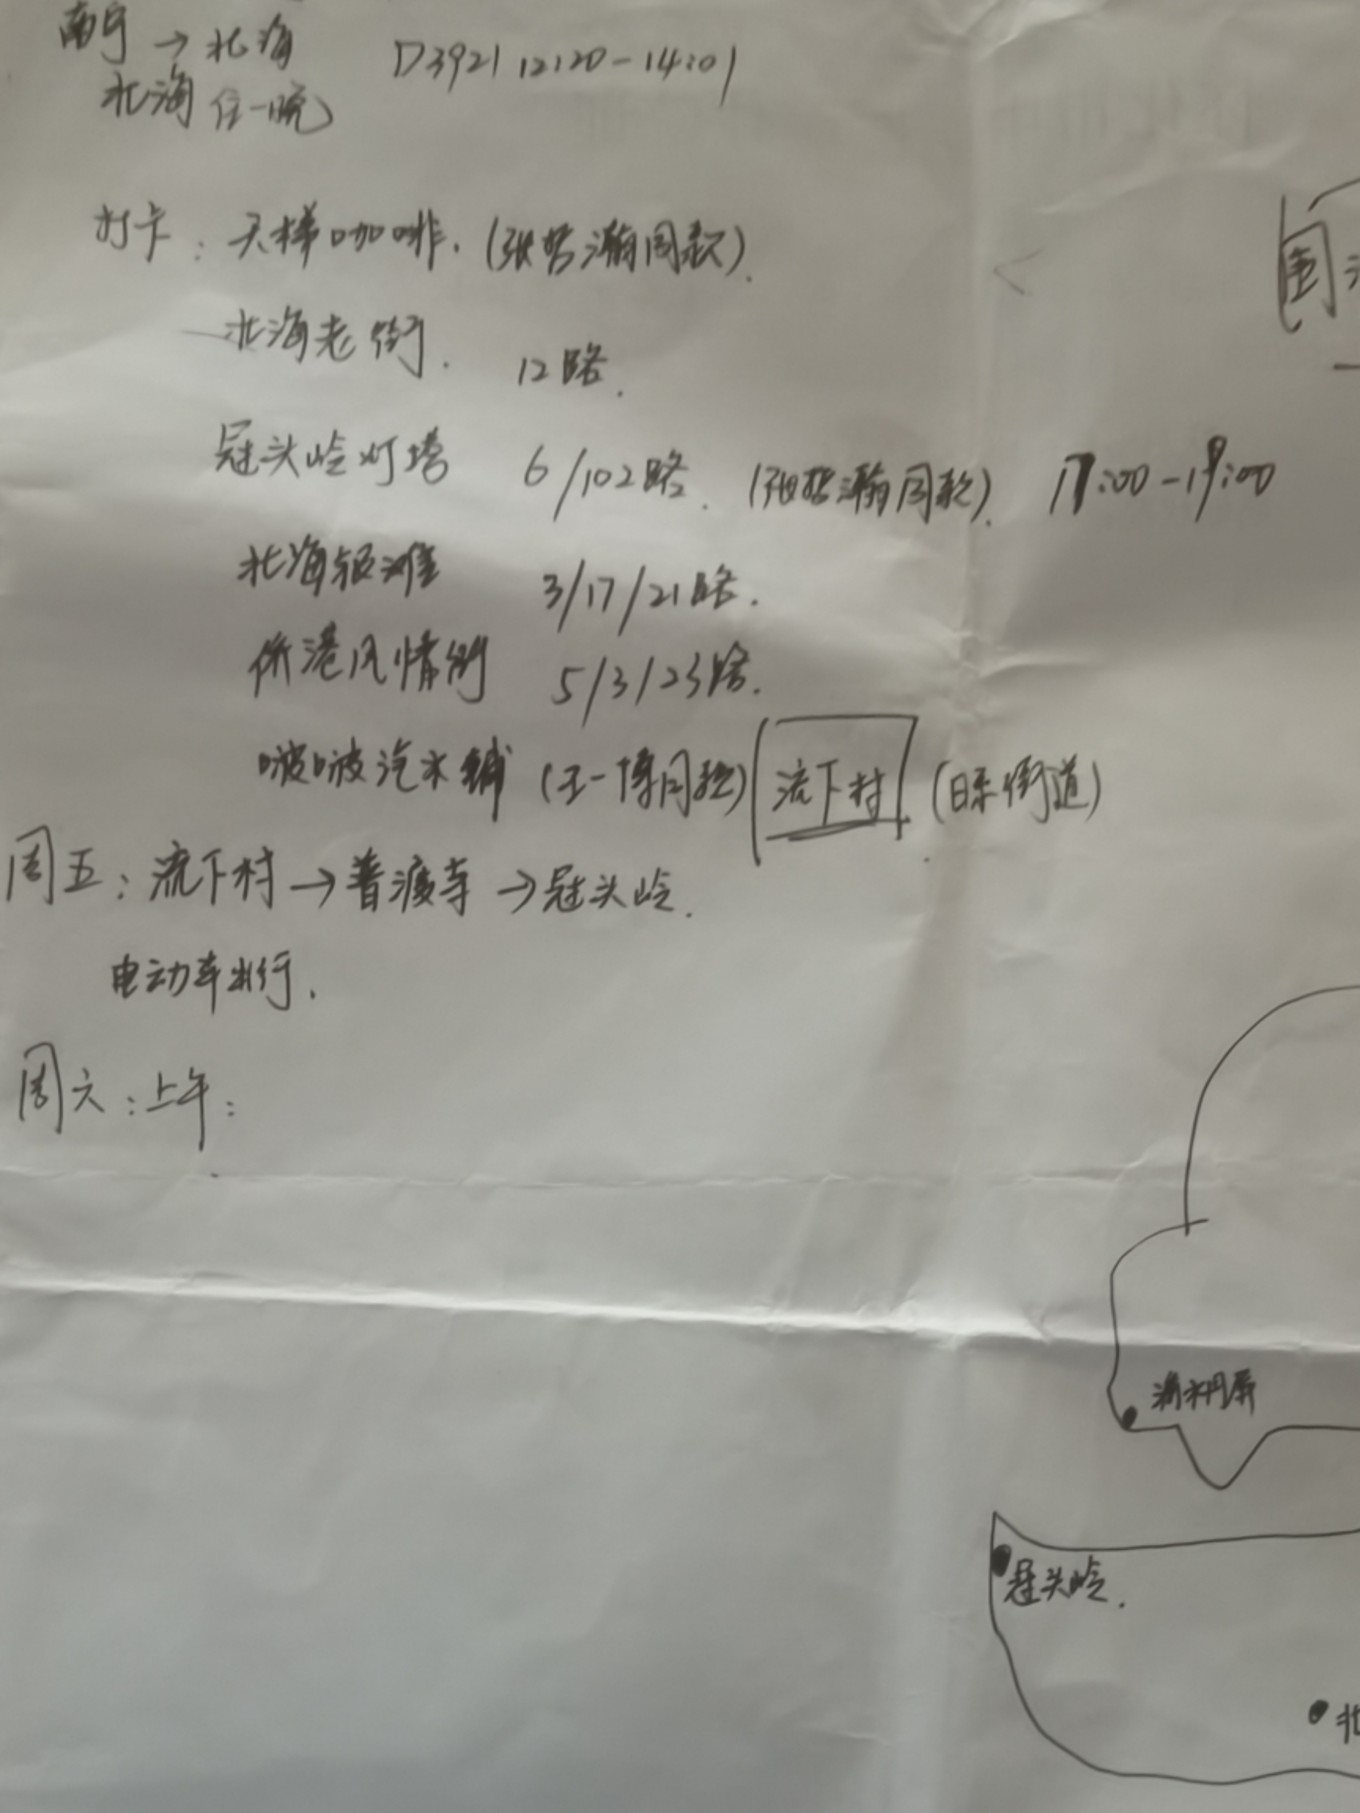 南宁→北海 D3921 12:20-14:01
北海住一晚
打卡:天梯咖啡.(张哲瀚同款).
北海老街. 12路.
冠头岭灯塔 6/102路.(张哲瀚同款). 17:00-19:00
北海银滩 3/17/21路.
侨港风情街 5/3/23路.
啵啵汽水铺(王一博同款) 流下村 (日系街道).
周五:流下村→普渡寺→冠头岭.
电动车出行.
周六:上午:
冠头岭.